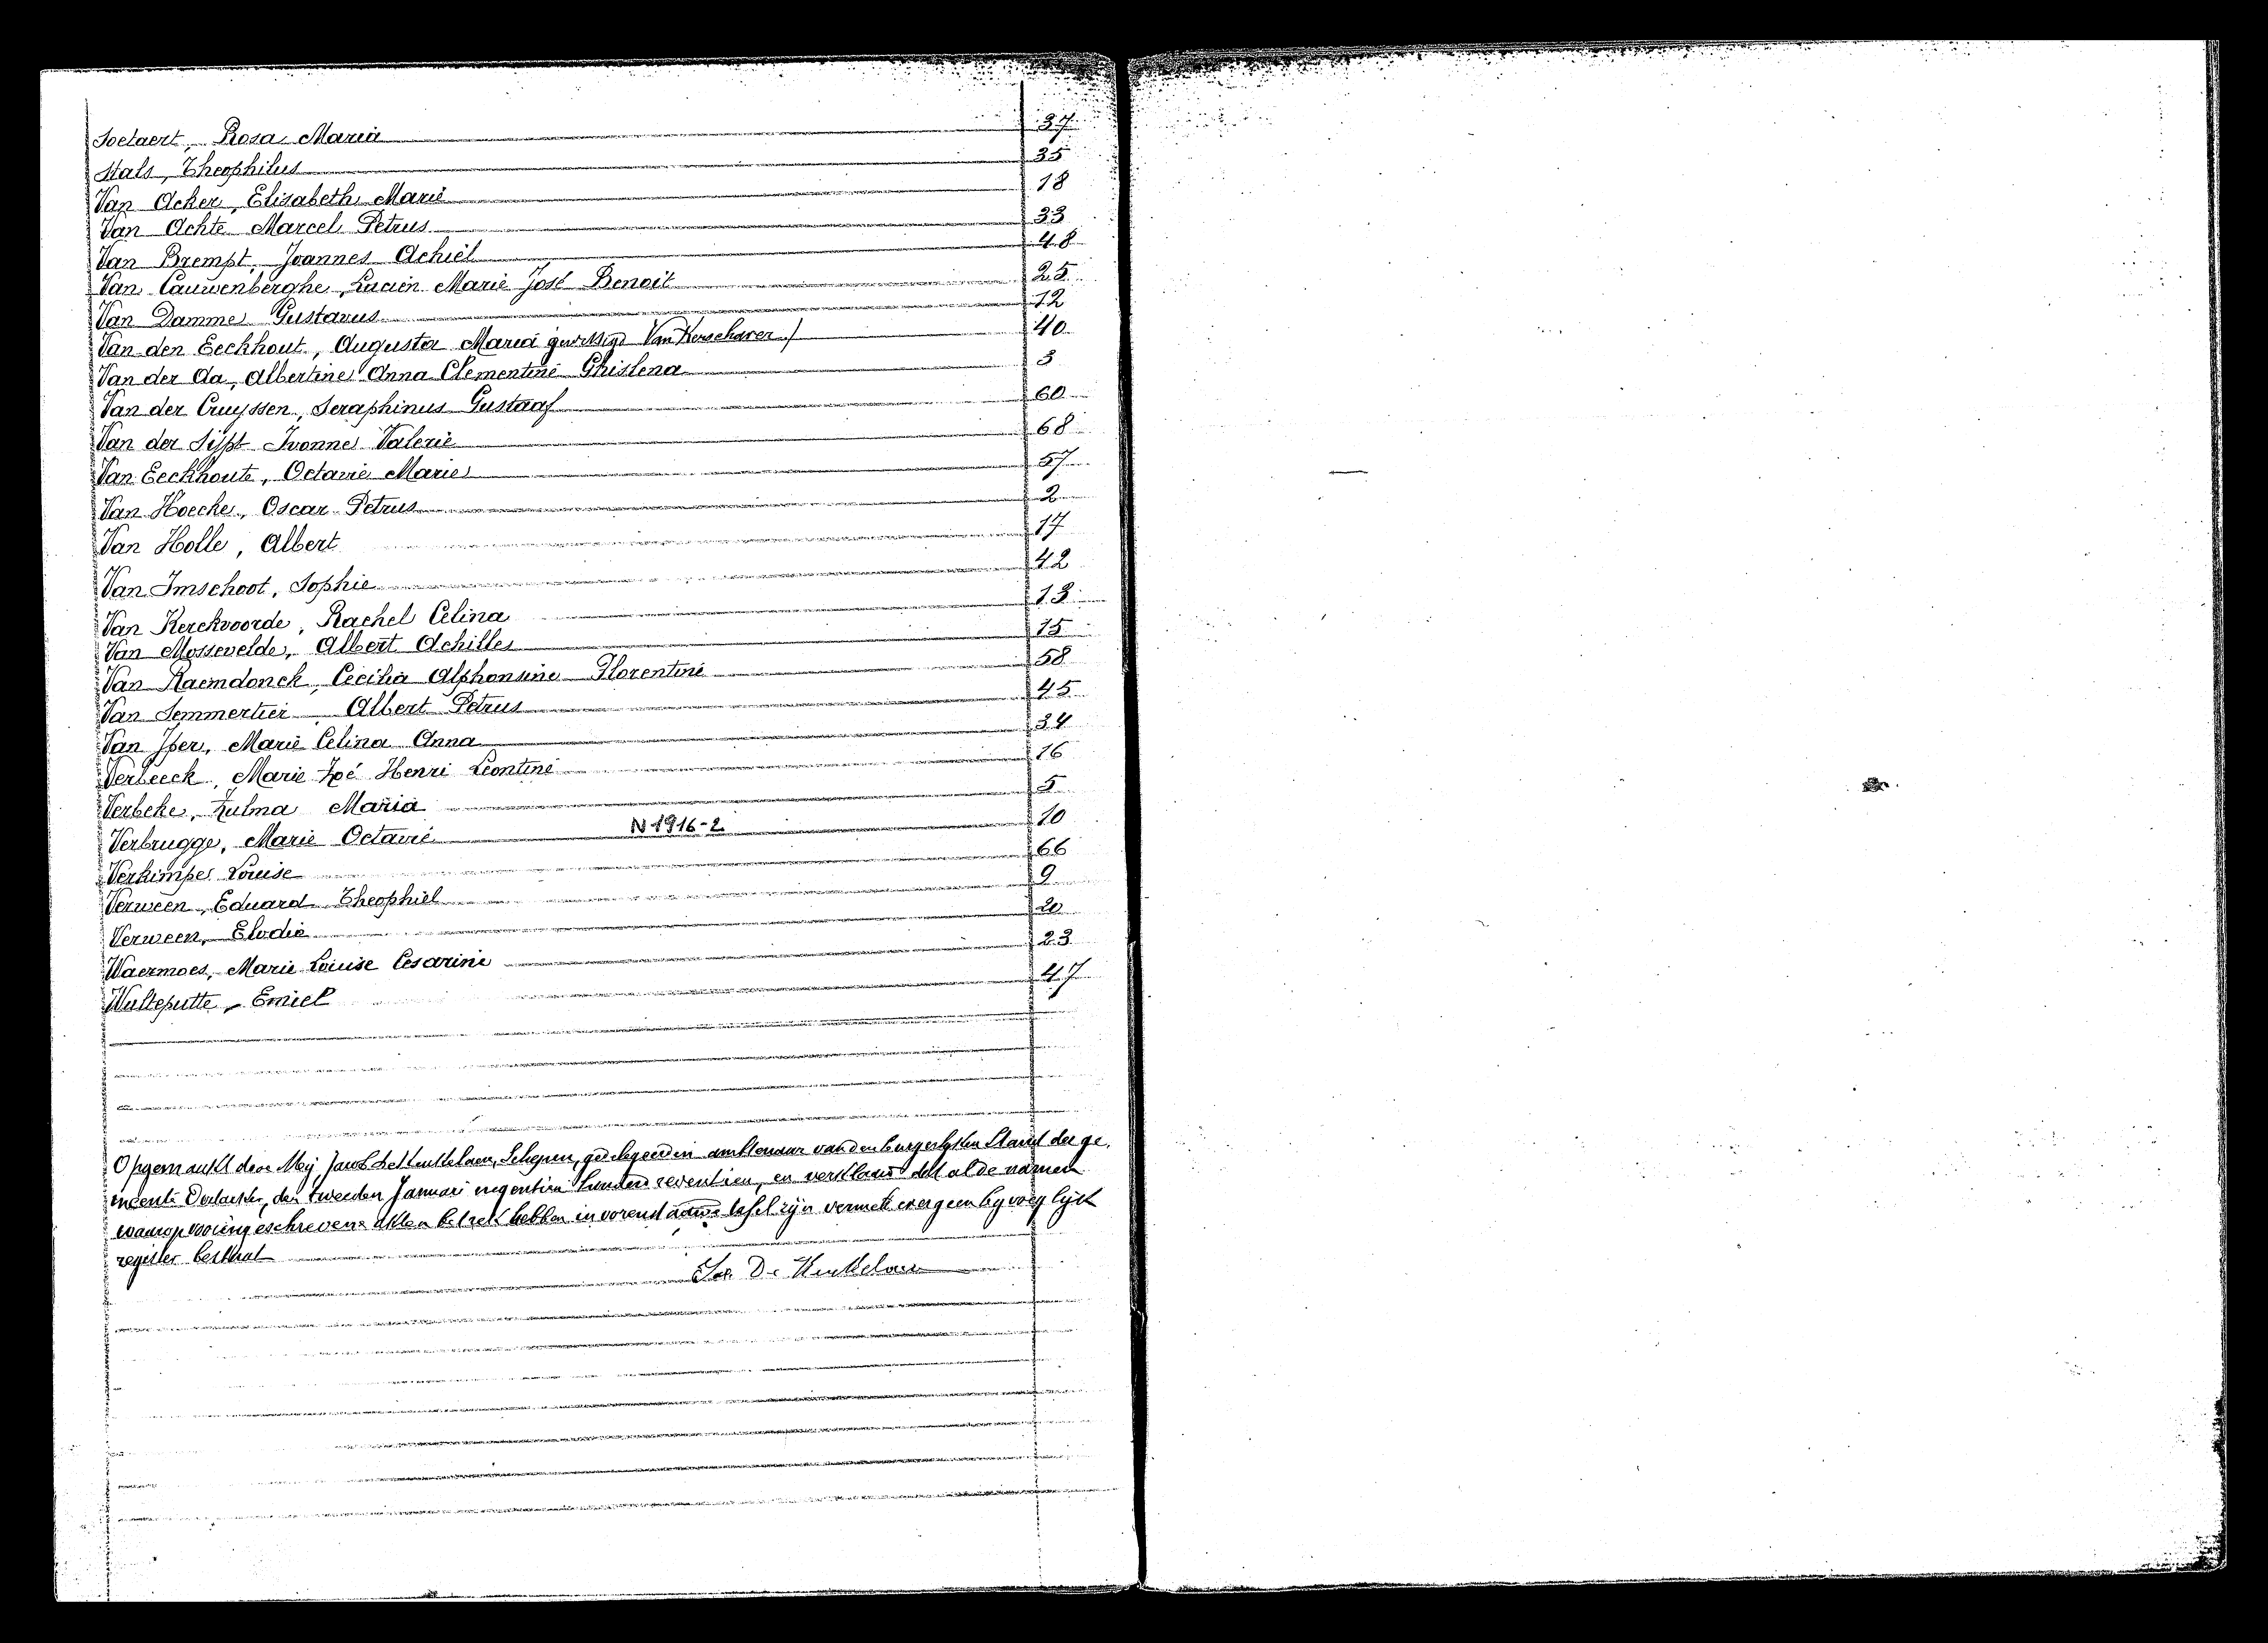 Soetaert, Rosa Maria 37
Stals, Theophilus 35
Van Acker, Elizabeth Marie 18
Van Achte Marcel Petrus 33
Van Brempt, Joannes Achiel 48
Van Cauwenberghe, Lucien Marie José Benoit 25
Van Damme Gustavus 12
Van den Eeckhout, Augusta Maria gewettigd Van Kerschaver 40
Van der Aa, Albertine Anna Clementine Ghislena 3
Van der Cruyssen, Seraphinus Gustaaf 60
Van der Sijpt Ivonne Valerie 68
Van Eeckhoute, Octavie Marie 57
Van Hoecke, Oscar Petrus 2
Van Holle, Albert 17
Van Imschoot, Sophie 42
Van Kerckvoorde, Rachel Celina 13
Van Mossevelde, Albert Achilles 15
Van Raemdonck, Cecilia Alphonsine Florentine 58
Van Semmertier Albert Petrus 45
Van Yper, Marie Celina Anna 34
Verbeeck, Marie Zoé Henri Leontine 16
Verbeke, Zulma Maria 5
Verbrugge, Marie Octavie N 1916-2 10
Verkimpe Louise 66
Verween, Eduard Theophiel 9
Verween, Elodie 20
Waermoes, Marie Louise Cesarine 23
Wulteputte, Emiel 47
Opgemaakt door Mij Jacob De Keukelaere, Schepen, gedelegeerden ambtenaar van den burgerlijken Stand der ge
meente den tweeden Januari negentien honderd zeventien, en verklaard dat al de namen
waarop voorengeschrevene akten betrek hebben in vorenstaande tafel zijn vermeld er geen bijvoeglijk
register bestaat
Jac. De Keukelaere